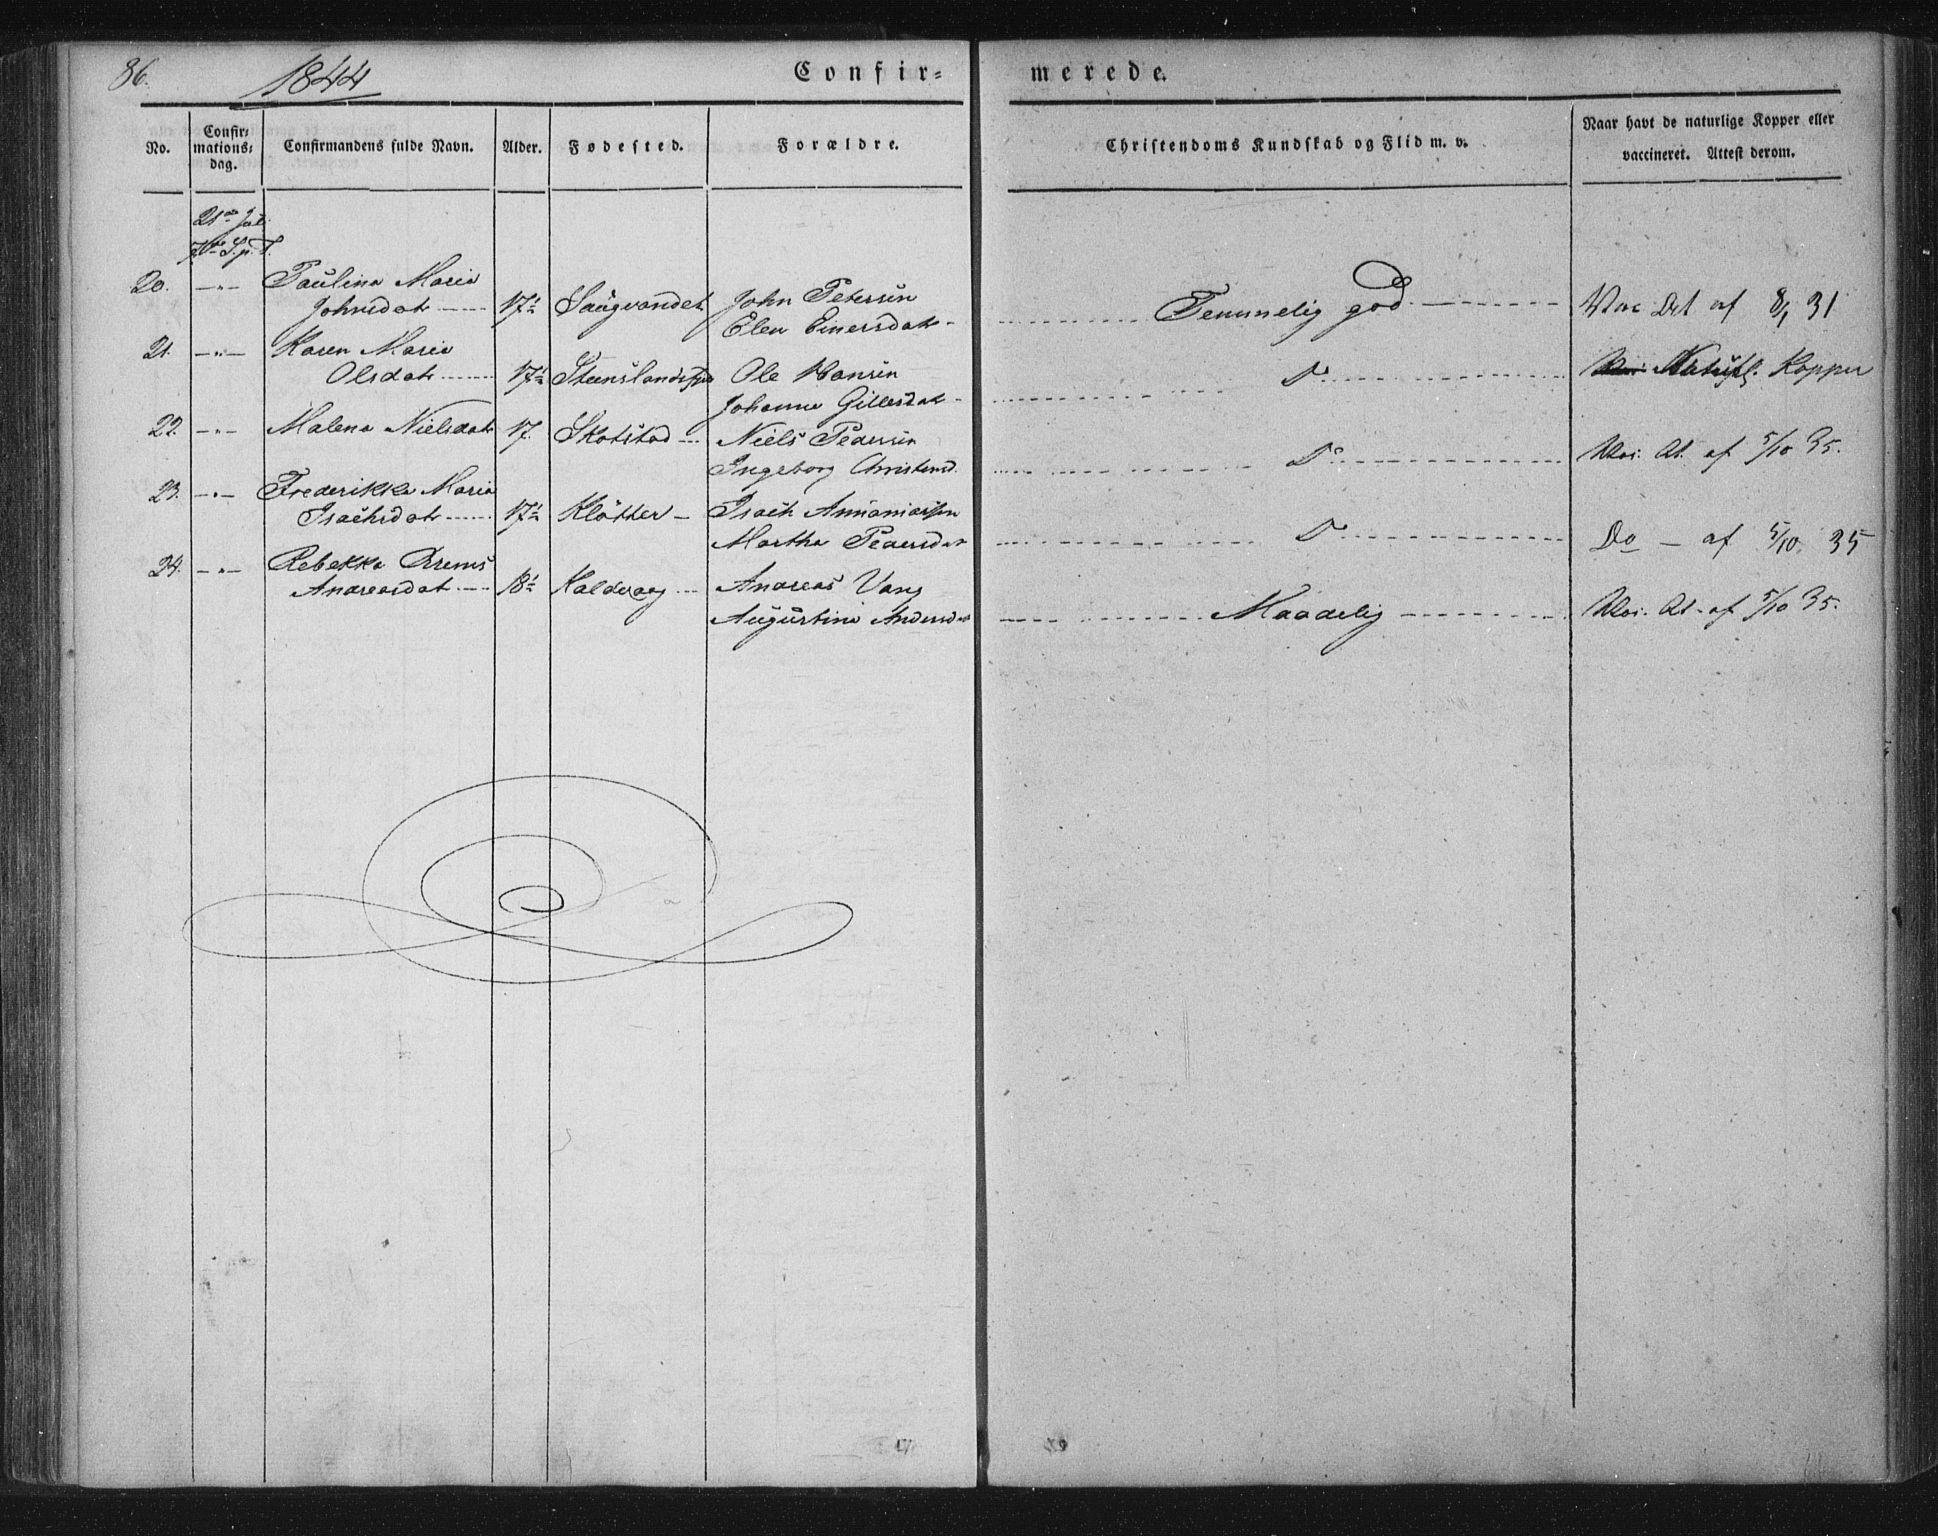 86.
1844
Confir=
merede.
No.
Confir=
mations=
dag.
Confirmandens fulde Navn.
Alder.
Fødested.
Forældre.
Christendoms Kundskab og Flid m. v.
Naar havt de naturlige Kopper eller
vaccineret. Attest derom.
21de Juli
7de S. p. T.
20. -"- Paulina Maria
Johnsdat 17½ John Petersen
Elen Einersdat
Temmelig god Vac At af 8/1 31
21. -"- Karen Maria
Olsdat 17½ Ole Hansen
Johanna Gillesdat
Do Naturl. Kopper
22. -"- Malena Nielsdat 17. Skotstad Niels Pedersen
Ingeborg Christensd.
Do Vac. At. af 5/10 35.
23. -"- Frederikka Maria
Isachsdat 17½ Kløtter Isach Annaniassen
Martha Pedersdat
Do Do af 5/10 35
24. -"- Rebekka
Andreasdat 18½ Kaldvaag Andreas Vang
Augustina Andersdat
Maadelig Vac. At. af 5/10 35.